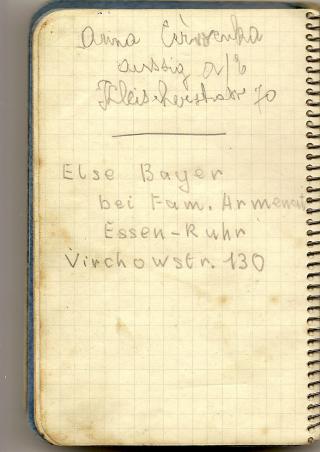 Anna
Aussig a/E
Fleischerstrasse 70
Else Bayer
bei Fam. Armenat
Essen-Ruhr
Virchowstr. 130